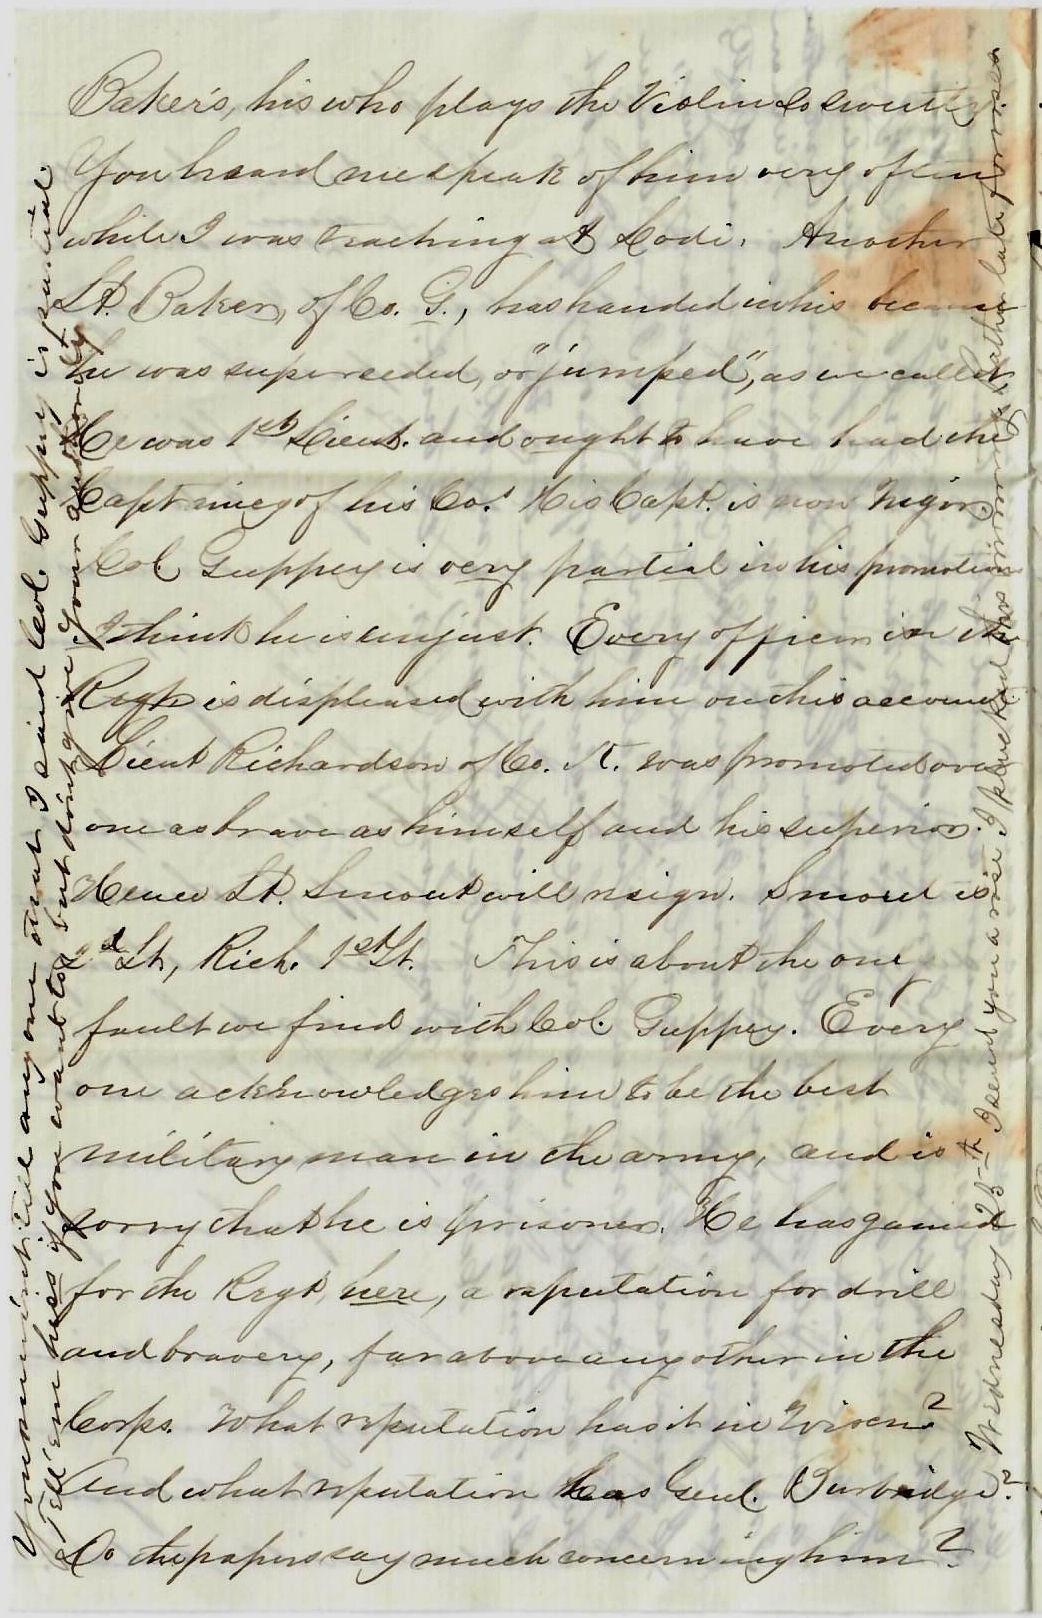 Baker's, his who plays the Violin so sweetly.
You heard me speak of him very often
while I was teaching at Lodi. Another
Lt. Baker, of Co. G., has handed in his because
he was superseeded, or "jumped", as we call it
He was 1st Lieut. and ought to have had the
Captaincy of his Co. His Capt. is now Major.
Col Guppey is very partial in his promotions
I think he is unjust. Every officer in the
Regt is displeased with him on this account
Lieut Richardson of Co. K. was promoted over
one as brave as himself and his superior.
Hence Lt. Smout will resign. Smout is
2d Lt, Rich. 1st Lt. This is about the only
fault we find with Col. Guppey. Every
one acknowledges him to be the best
military man in the army, and is
sorry that he is prisoner. He has gained
for the Regt, here, a reputation for drill
and bravery, far above any other in the
Corps. What reputation has it in Wiscn?
And what reputation has Genl. Burbridge?
Do the papers say much concerning him?
You mus'nt tell any one that I said Col. Guppey is partial.
Tell 'em his if you want to, but don't give your authority
Wednesday 25th I send you a rose I plucked this morning rather late for roses